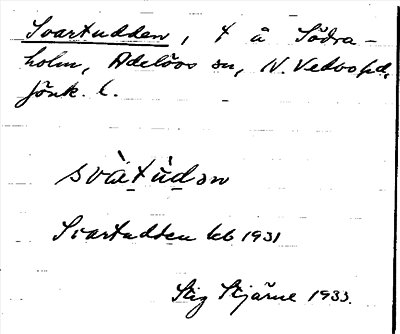 Svartudden, t å Södra-
holm, Adelövs sn, N. Vedbo hd,
Jönk. l.
svàtùdən
Svartudden keb 1931
Stig Stjärne 1933.